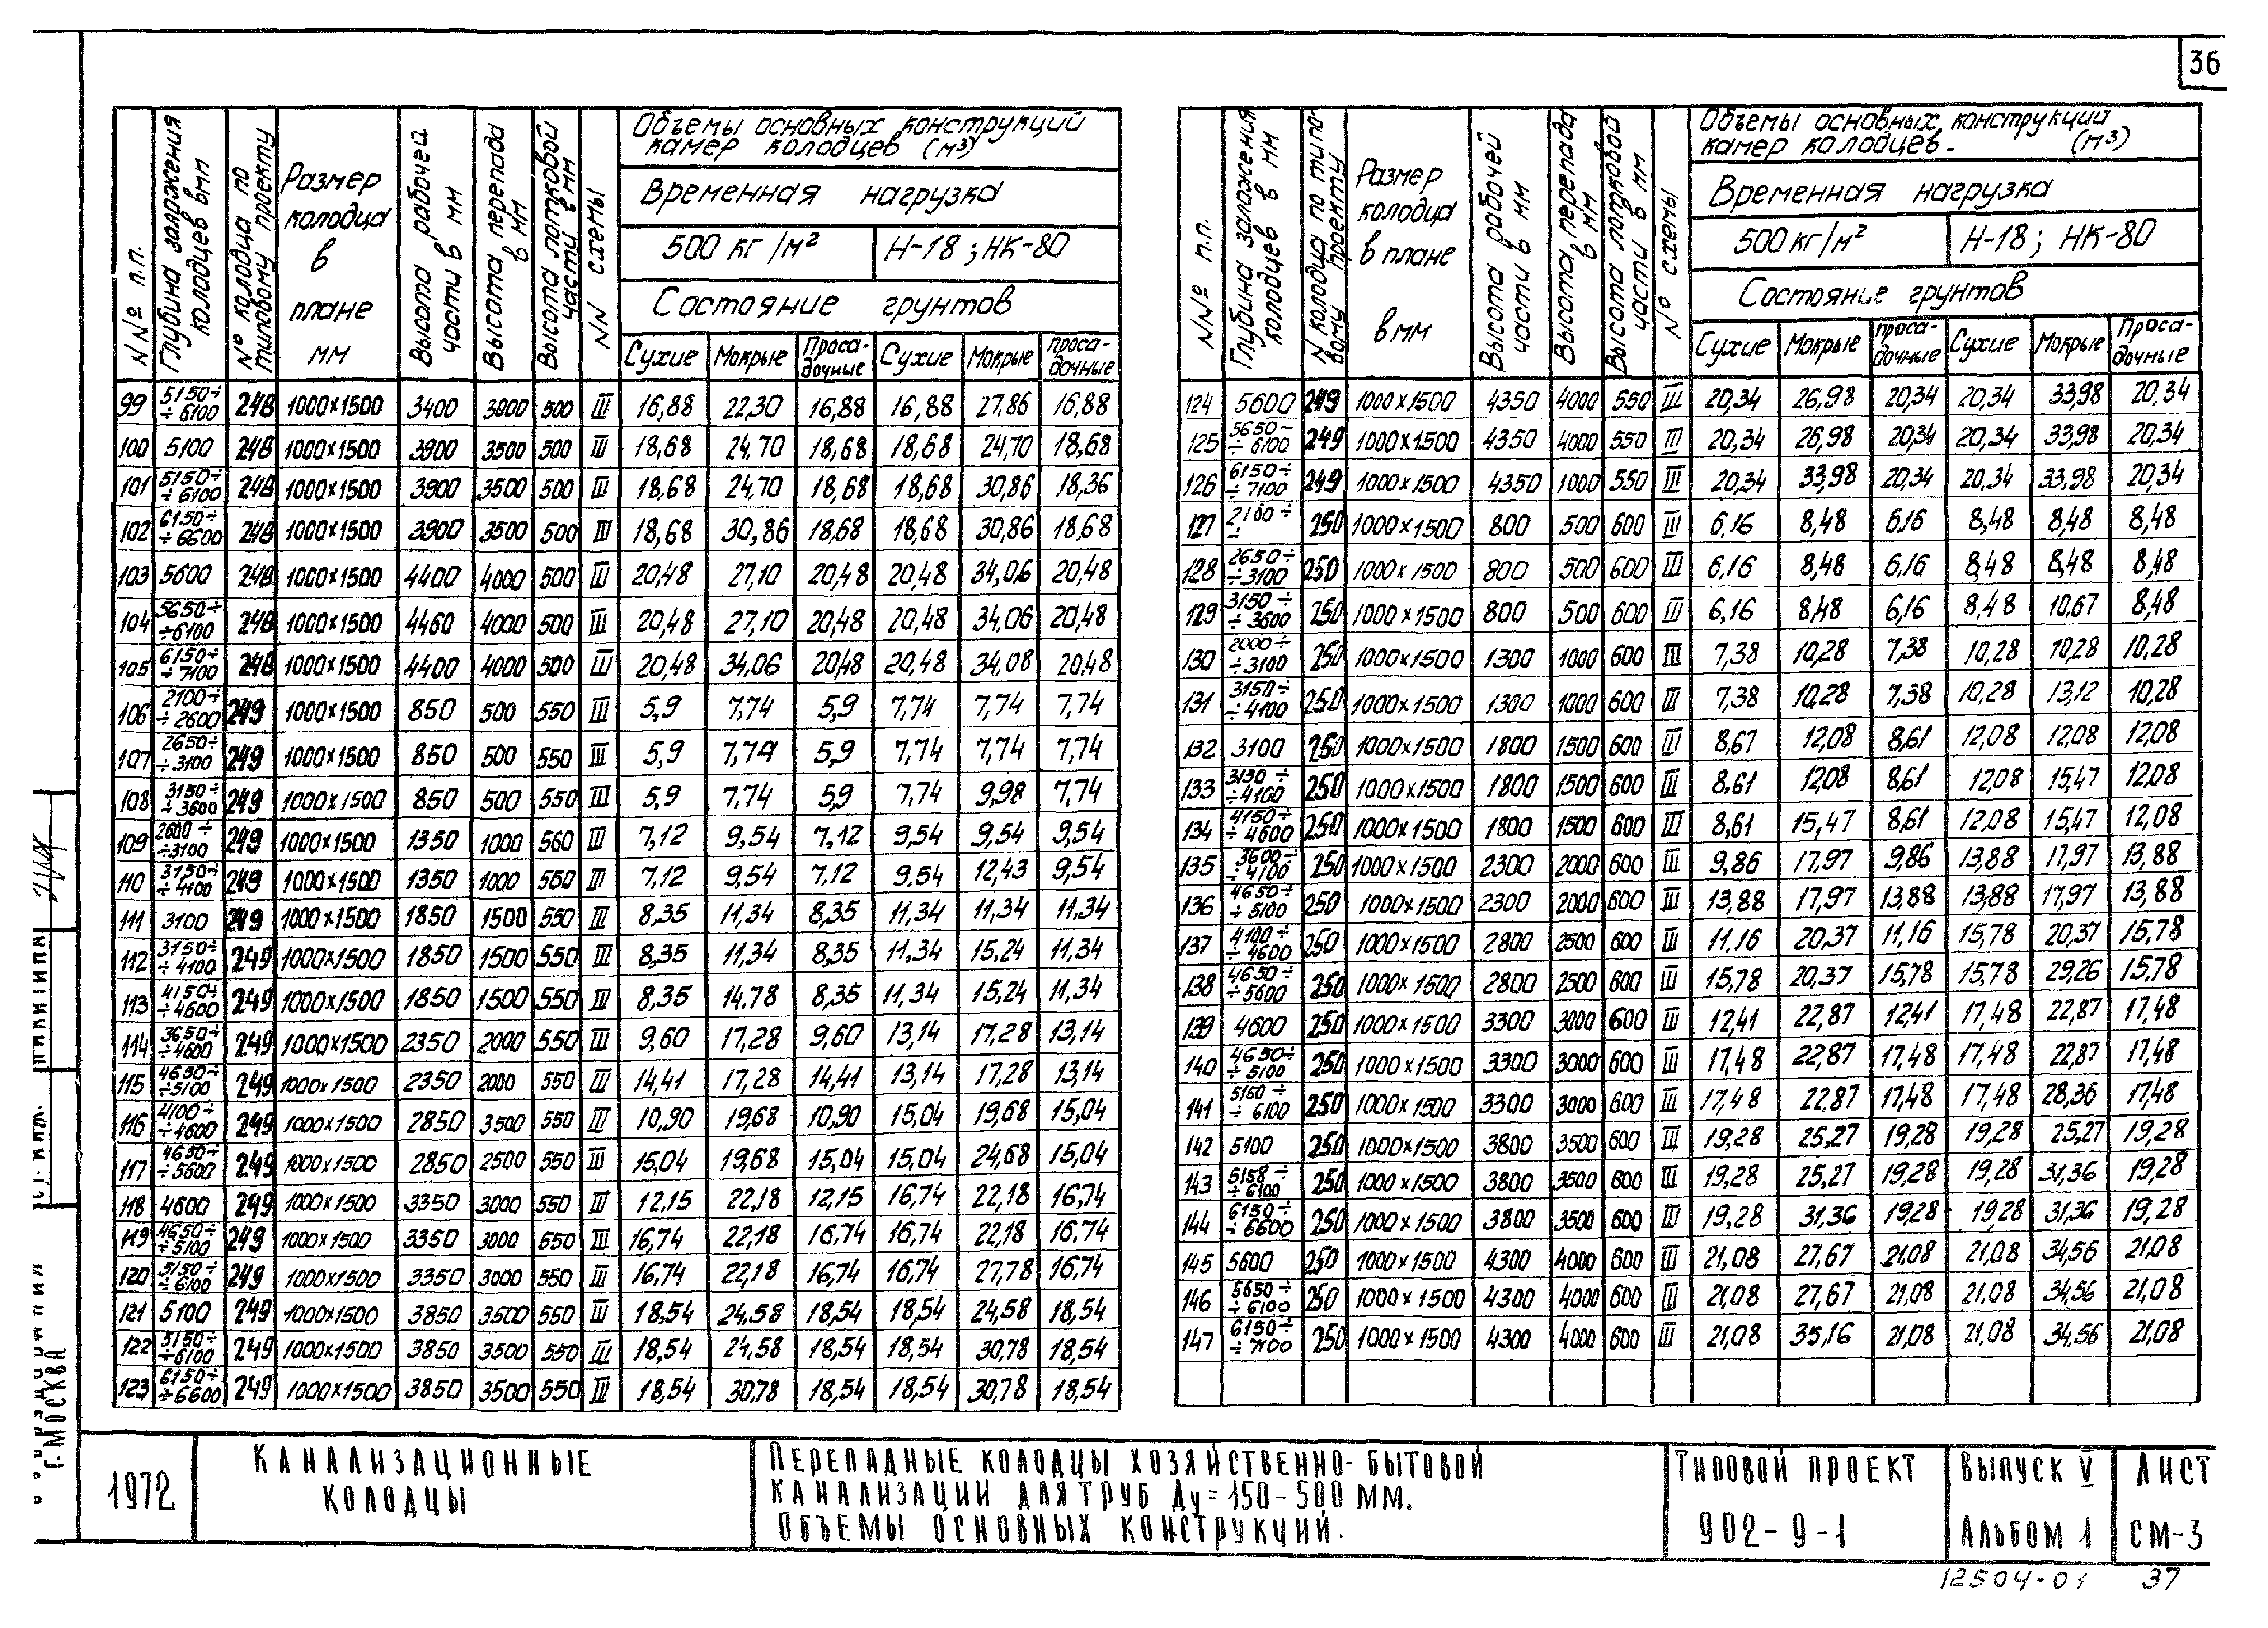 36
NN№ п.п. Глубина заложения колодцев в мм № колодца по типовому проекту Размер колодца в плане мм Высота рабочей части в мм Высота перепада в мм Высота лотковой части в мм NN схемы
Объемы основных конструкций камер колодцев (м³)
Временная нагрузка
500 кг/м² Н-18; НК-80
Состояние грунтов
Сухие Мокрые Просадочные Сухие Мокрые просадочные
99 5150÷÷6100 248 1000×1500 3400 3000 500 III 16,88 22,30 16,88 16,88 27,86 16,88
100 5100 248 1000×1500 3900 3500 500 III 18,68 24,70 18,68 18,68 24,70 18,68
101 5150÷÷6100 248 1000×1500 3900 3500 500 III 18,68 24,70 18,68 18,68 30,86 18,36
102 6150÷÷6600 248 1000×1500 3900 3500 500 III 18,68 30,86 18,68 18,68 30,86 18,68
103 5600 248 1000×1500 4400 4000 500 III 20,48 27,10 20,48 20,48 34,06 20,48
104 5650÷÷6100 248 1000×1500 4460 4000 500 III 20,48 27,10 20,48 20,48 34,06 20,48
105 6150÷÷7100 248 1000×1500 4400 4000 500 III 20,48 34,06 20,48 20,48 34,08 20,48
106 2100÷÷2600 249 1000×1500 850 500 550 III 5,9 7,74 5,9 7,74 7,74 7,74
107 2650÷÷3100 249 1000×1500 850 500 550 III 5,9 7,74 5,9 7,74 7,74 7,74
108 3150÷÷3600 249 1000×1500 850 500 550 III 5,9 7,74 5,9 7,74 9,98 7,74
109 2600÷÷3100 249 1000×1500 1350 1000 560 III 7,12 9,54 7,12 9,54 9,54 9,54
110 3150÷÷4100 249 1000×1500 1350 1000 550 III 7,12 9,54 7,12 9,54 12,43 9,54
111 3100 249 1000×1500 1850 1500 550 III 8,35 11,34 8,35 11,34 11,34 11,34
112 3150÷÷4100 249 1000×1500 1850 1500 550 III 8,35 11,34 8,35 11,34 15,24 11,34
113 4150÷÷4600 249 1000×1500 1850 1500 550 III 8,35 14,78 8,35 11,34 15,24 11,34
114 3650÷÷4600 249 1000×1500 2350 2000 550 III 9,60 17,28 9,60 13,14 17,28 13,14
115 4650÷÷5100 249 1000×1500 2350 2000 550 III 14,41 17,28 14,41 13,14 17,28 13,14
116 4100÷÷4600 249 1000×1500 2850 3500 550 III 10,90 19,68 10,90 15,04 19,68 15,04
117 4650÷÷5600 249 1000×1500 2850 2500 550 III 15,04 19,68 15,04 15,04 24,68 15,04
118 4600 249 1000×1500 3350 3000 550 III 12,15 22,18 12,15 16,74 22,18 16,74
119 4650÷÷5100 249 1000×1500 3350 3000 550 III 16,74 22,18 16,74 16,74 22,18 16,74
120 5150÷÷6100 249 1000×1500 3350 3000 550 III 16,74 22,18 16,74 16,74 27,78 16,74
121 5100 249 1000×1500 3850 3500 550 III 18,54 24,58 18,54 18,54 24,58 18,54
122 5150÷÷6100 249 1000×1500 3850 3500 550 III 18,54 24,58 18,54 18,54 30,78 18,54
123 6150÷÷6600 249 1000×1500 3850 3500 550 III 18,54 30,78 18,54 18,54 30,78 18,54
NN№ п.п. Глубина заложения колодцев в мм N колодца по типовому проекту Размер колодца в плане в мм Высота рабочей части в мм Высота перепада в мм Высота лотковой части в мм N° схемы
Объемы основных конструкций камер колодцев. (м³)
Временная нагрузка
500 кг/м² Н-18; НК-80
Состояние грунтов
Сухие Мокрые просадочные Сухие Мокрые Просадочные
124 5600 249 1000×1500 4350 4000 550 III 20,34 26,98 20,34 20,34 33,98 20,34
125 5650÷÷6100 249 1000×1500 4350 4000 550 III 20,34 26,98 20,34 20,34 33,98 20,34
126 6150÷÷7100 249 1000×1500 4350 1000 550 III 20,34 33,98 20,34 20,34 33,98 20,34
127 2100÷ 250 1000×1500 800 500 600 III 6,16 8,48 6,16 8,48 8,48 8,48
128 2650÷÷3100 250 1000×1500 800 500 600 III 6,16 8,48 6,16 8,48 8,48 8,48
129 3150÷÷3600 250 1000×1500 800 500 600 III 6,16 8,48 6,16 8,48 10,67 8,48
130 2000÷÷3100 250 1000×1500 1300 1000 600 III 7,38 10,28 7,38 10,28 10,28 10,28
131 3150÷÷4100 250 1000×1500 1300 1000 600 III 7,38 10,28 7,38 10,28 13,12 10,28
132 3100 250 1000×1500 1800 1500 600 III 8,67 12,08 8,61 12,08 12,08 12,08
133 3150÷÷4100 250 1000×1500 1800 1500 600 III 8,61 12,08 8,61 12,08 15,47 12,08
134 4150÷÷4600 250 1000×1500 1800 1500 600 III 8,61 15,47 8,61 12,08 15,47 12,08
135 3600÷÷4100 250 1000×1500 2300 2000 600 III 9,86 17,97 9,86 13,88 17,97 13,88
136 4650÷÷5100 250 1000×1500 2300 2000 600 III 13,88 17,97 13,88 13,88 17,97 13,88
137 4100÷÷4600 250 1000×1500 2800 2500 600 III 11,16 20,37 11,16 15,78 20,37 15,78
138 4650÷÷5600 250 1000×1500 2800 2500 600 III 15,78 20,37 15,78 15,78 29,26 15,78
139 4600 250 1000×1500 3300 3000 600 III 12,41 22,87 12,41 17,48 22,87 17,48
140 4650÷÷5100 250 1000×1500 3300 3000 600 III 17,48 22,87 17,48 17,48 22,87 17,48
141 5150÷÷6100 250 1000×1500 3300 3000 600 III 17,48 22,87 17,48 17,48 28,36 17,48
142 5100 250 1000×1500 3800 3500 600 III 19,28 25,27 19,28 19,28 25,27 19,28
143 5158÷÷6100 250 1000×1500 3800 3500 600 III 19,28 25,27 19,28 19,28 31,36 19,28
144 6150÷÷6600 250 1000×1500 3800 3500 600 III 19,28 31,36 19,28 19,28 31,36 19,28
145 5600 250 1000×1500 4300 4000 600 III 21,08 27,67 21,08 21,08 34,56 21,08
146 5650÷÷6100 250 1000×1500 4300 4000 600 III 21,08 27,67 21,08 21,08 34,56 21,08
147 6150÷÷7100 250 1000×1500 4300 4000 600 III 21,08 35,16 21,08 21,08 34,56 21,08
г. Москва
1972
Канализационные
колодцы
Перепадные колодцы хозяйственно-бытовой
канализации для труб Ду=150-500 мм.
Объемы основных конструкций.
Типовой проект
902-9-1
Выпуск V
Альбом 1
Лист
СМ-3
12504-01 37